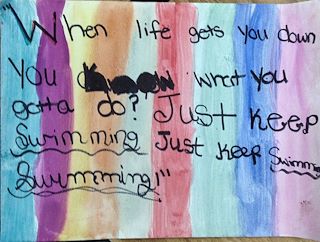 "When life gets you down
you know what you
gotta do? Just keep
swimming Just keep swimming
swimmming!"